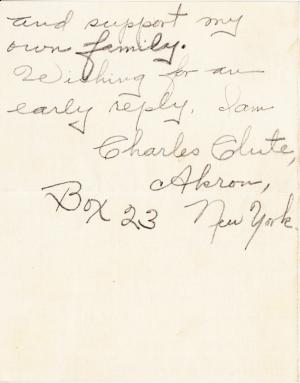 and support my
own family.
Wishing for an
early reply, I am
Charles Clute,
Akron,
Box 23 New York.